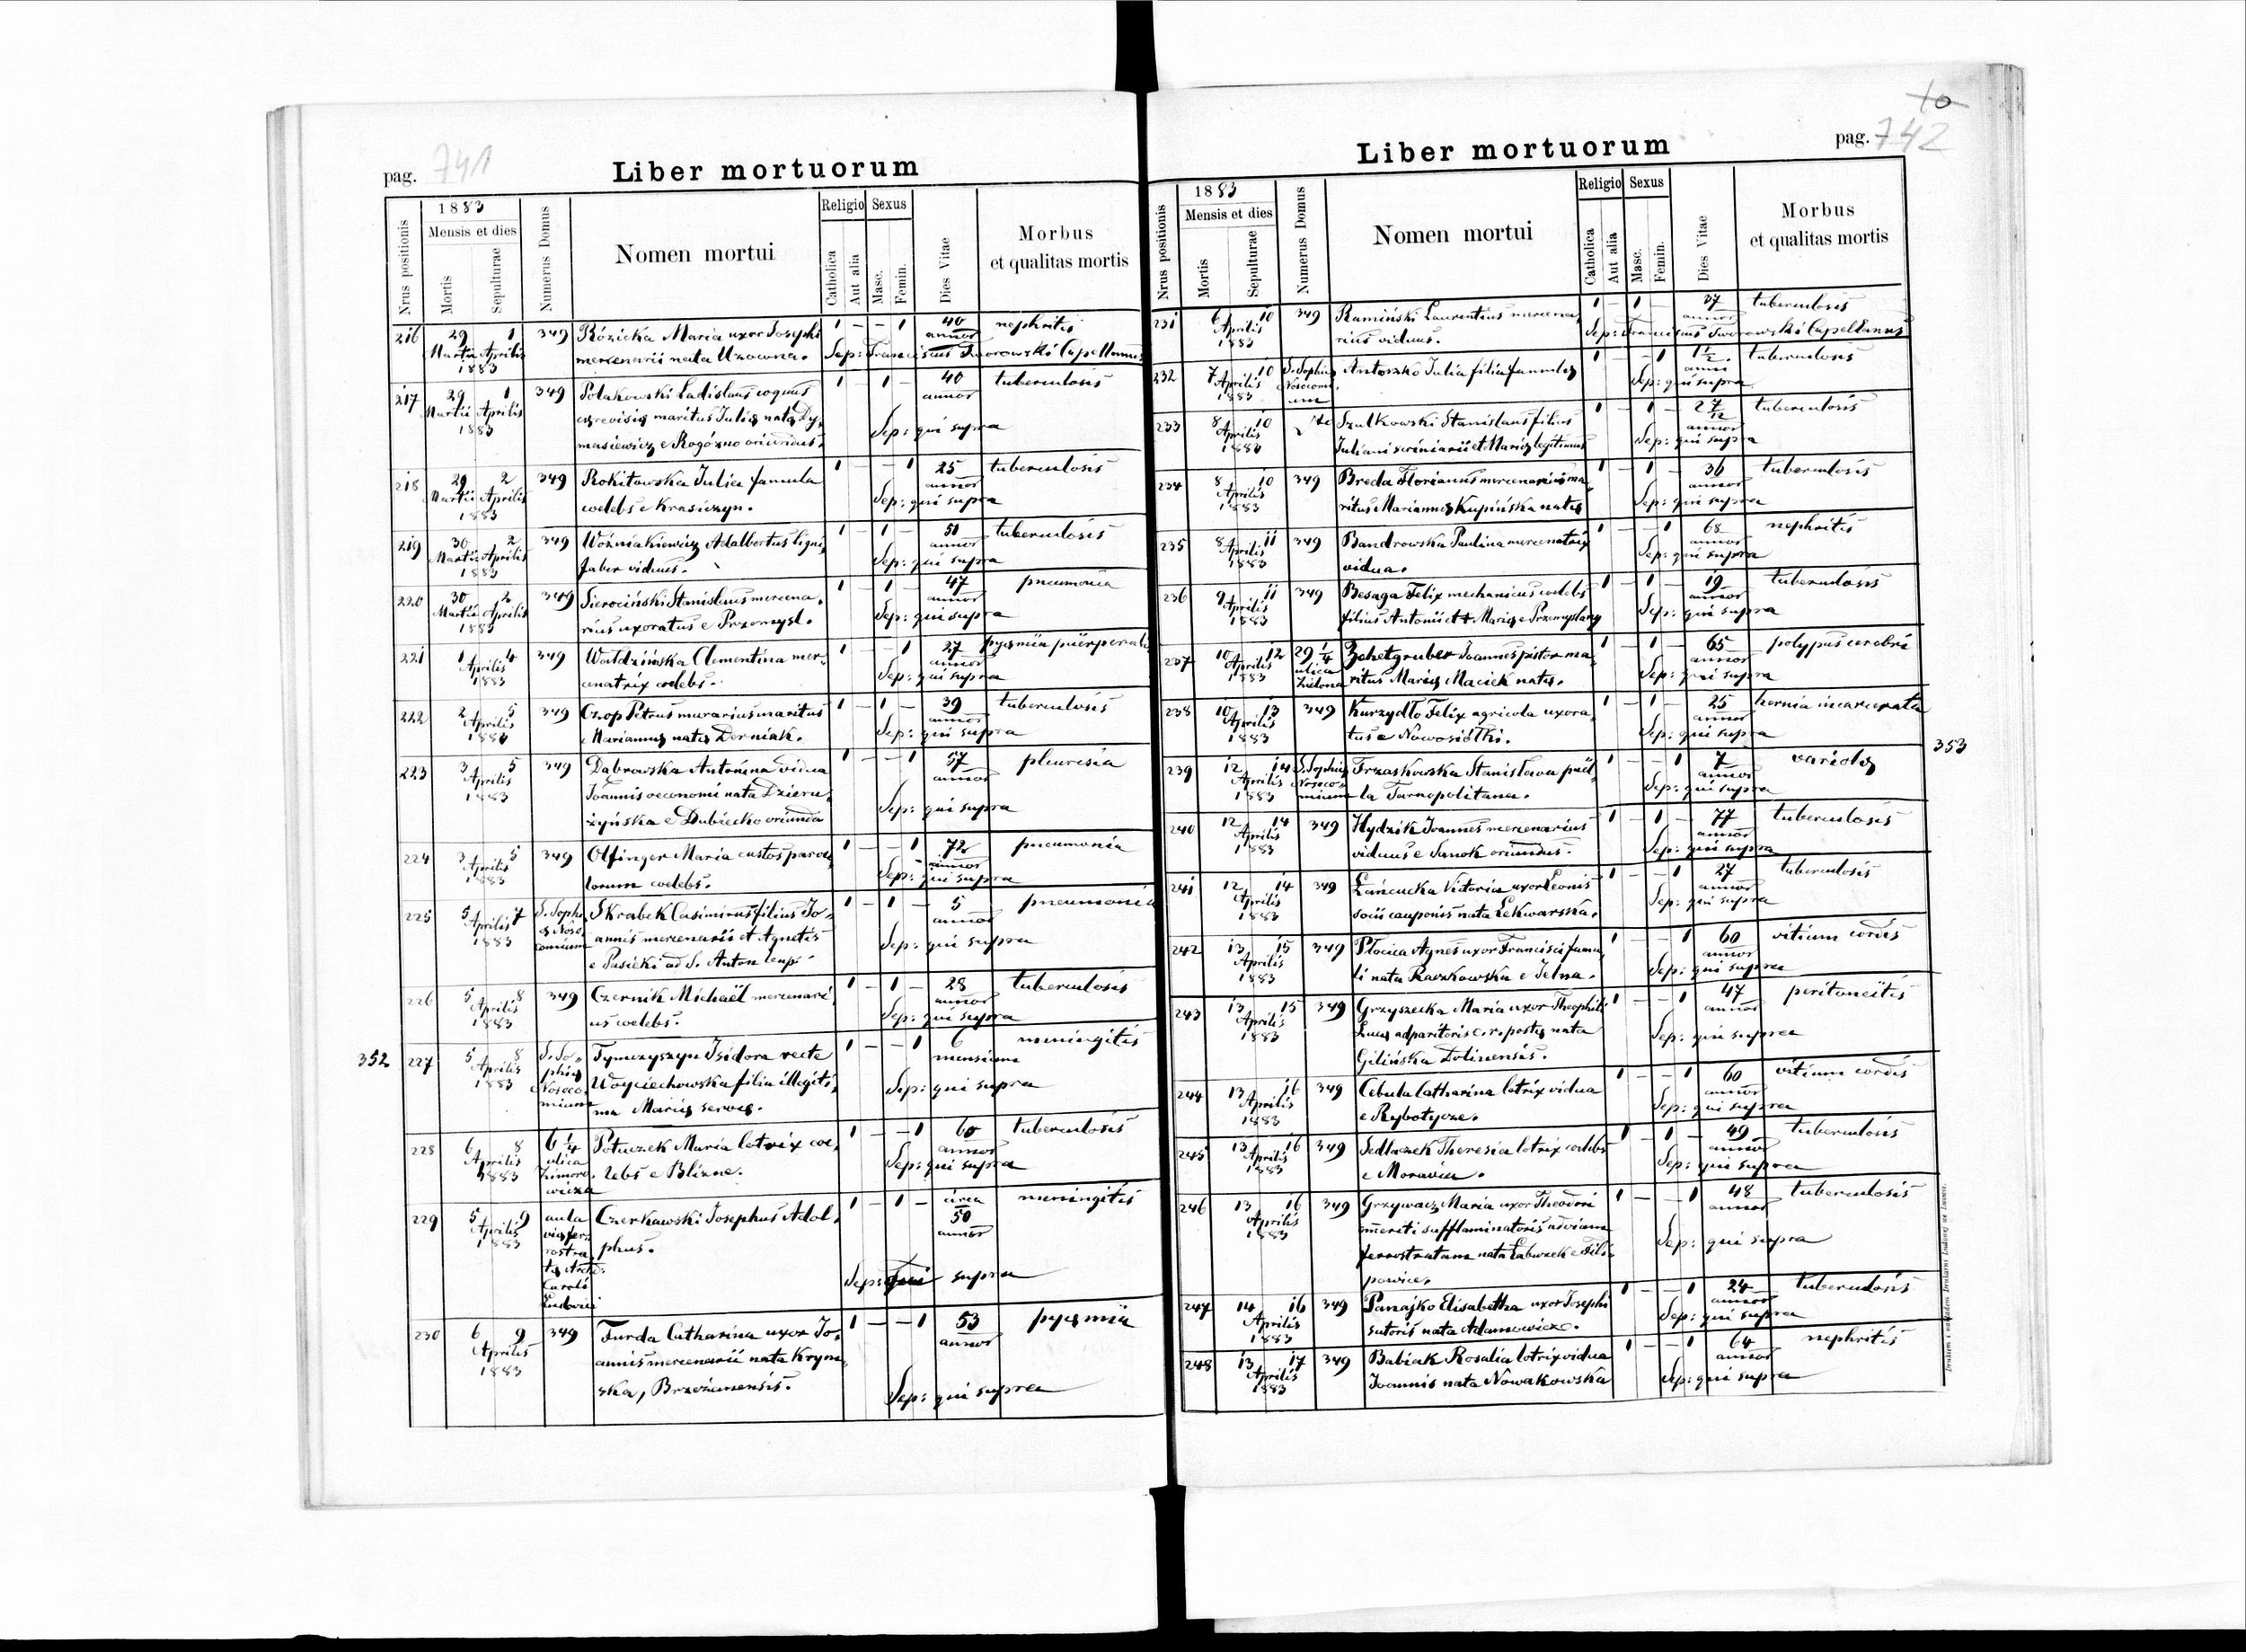 pag. 741
Liber mortuorum
Nrus positionis
1883
Mensis et dies
Mortis
Sepulturae
Numerus Domus
Nomen mortui
Religio
Catholica
Aut alia
Sexus
Masc.
Femin.
Dies Vitae
Morbus
et qualitas mortis
216 29 1 349 Rózicka Maria uxor Josephi 1 – – 1 40 nephritis
Martii Aprilis mercenarii nata Uzowna. annor
1883 Sep: Franciscus Tworowski Capellanus
217 29 1 349 Polakowski Ladislaus coquus 1 – 1 – 40 tuberculosis
Martii Aprilis cerevisię maritus Julię natę Dy, annor
1883 masiewicz e Rogózno oriundus. Sep: qui supra
218 29 2 349 Rokitowska Julia famula 1 – – 1 25 tuberculosis
Martii Aprilis coelebs e Krasiczyn. annor
1883 Sep: qui supra
219 30 2 349 Woźniakiewicz Adalbertus ligni, 1 – 1 – 50 tuberculosis
Martii Aprilis faber viduus. annor
1883 Sep: qui supra
220 30 2 349 Sierociński Stanislaus mercena, 1 – 1 – 47 pneumonia
Martii Aprilis rius uxoratus e Przemysl. annor
1883 Sep: qui supra
221 1 4 349 Waldzińska Clementina mer, 1 – – 1 27 pyęmia puerperalis
Aprilis cenatrix coelebs. annor
1883 Sep: qui supra
222 2 5 349 Czop Petrus murarius maritus 1 – 1 – 39 tuberculosis
Aprilis Mariannę natę Derniak. annor
1883 Sep: qui supra
223 3 5 349 Dąbrowska Antonina vidua 1 – – 1 57 pleuresia
Aprilis Joannis oeconomi nata Dzieru, annor
1883 żyńska e Dubiecko oriunda Sep: qui supra
224 3 5 349 Olfinger Maria custos parvu, 1 – – 1 72 pneumonia
Aprilis lorum coelebs. annor
1883 Sep: qui supra
225 5 7 S. Sophi, Skrabek Casimirus filius Jo= 1 – 1 – 5 pneumonia
Aprilis ę Noso, annis mercenarii et Agnetis annor
1883 comium e Pasieki ad S. Anton Leop. Sep: qui supra
226 5 8 349 Czernik Michaël mercenari, 1 – 1 – 28 tuberculosis
Aprilis us coelebs. annor
1883 Sep: qui supra
352 227 5 8 S. So= Tymczyszyn Isidora recte 1 – – 1 6 meningitis
Aprilis phię Woyciechowska filia illegiti, mensium
1883 Nosoco, ma Marię servę. Sep: qui supra
mium
228 6 8 6¼ Potuczek Maria lotrix coe, 1 – – 1 60 tuberculosis
Aprilis ulica lebs e Blizne. annor
1883 Zimoro, Sep: qui supra
wicza
229 5 9 aula Czerkawski Josephus Adol, 1 – 1 – circa meningitis
Aprilis vię fer, phus. 50
1883 rostra, annor
tę Arch:
Caroli Sep: qui supra
Ludovici
230 6 9 349 Furda Catharina uxor Jo, 1 – – 1 53 pyęmia
Aprilis annis mercenarii nata Kryni, annor
1883 ska, Brzeżanensis. Sep: qui supra
10
pag. 742
Liber mortuorum
Nrus positionis
1883
Mensis et dies
Mortis
Sepulturae
Numerus Domus
Nomen mortui
Religio
Catholica
Aut alia
Sexus
Masc.
Femin.
Dies Vitae
Morbus
et qualitas mortis
231 6 10 349 Kamiński Laurentius mercena, 1 – 1 – 37 tuberculosis
Aprilis rius viduus. annor
1883 Sep: Franciscus Tworowski Capellanus
232 7 10 S. Sophię Antoszko Julia filia famulę 1 – – 1 1½ tuberculosis
Aprilis Nosocomi, anni
1883 um Sep: qui supra
233 8 10 Szulkowski Stanislaus filius 1 – 1 – 2 7/12 tuberculosis
Aprilis Juliani scriniarii et Marię legitimus annor
1883 Sep: qui supra
234 8 10 349 Breda Florianus mercenarius ma, 1 – 1 – 36 tuberculosis
Aprilis ritus Mariannę Kupińska natę annor
1883 Sep: qui supra
235 8 11 349 Bandrowska Paulina mercenatrix 1 – – 1 68 nephritis
Aprilis vidua. annor
1883 Sep: qui supra
236 9 11 349 Besaga Felix mechanicus coelebs 1 – 1 – 19 tuberculosis
Aprilis filius Antonii et Marię e Przemyslany annor
1883 Sep: qui supra
237 10 12 29¼ Zehetgruber Joannes pistor ma, 1 – 1 – 65 polypus cerebri
Aprilis ulica ritus Marię Maciek natę. annor
1883 Zielona Sep: qui supra
238 10 13 349 Kurzydło Felix agricola uxora, 1 – 1 – 25 hernia incarcerata
Aprilis tus e Nowosiółki. annor
1883 Sep: qui supra
239 12 14 S. Sophię Trzaskowska Stanislava puel, 1 – – 1 7 variolę 353
Aprilis Nosoco, la Tarnopolitana. annor
1883 mium Sep: qui supra
240 12 14 349 Hydzik Joannes mercenarius 1 – 1 – 77 tuberculosis
Aprilis viduus e Sanok oriundus. annor
1883 Sep: qui supra
241 12 14 349 Łańcucka Victoria uxor Leonis 1 – – 1 27 tuberculosis
Aprilis socii cauponis nata Lekwarska. annor
1883 Sep: qui supra
242 13 15 349 Płocica Agnes uxor Francisci famu, 1 – – 1 60 vitium cordis
Aprilis li nata Raczkowska e Jelna. annor
1883 Sep: qui supra
243 13 15 349 Grzyszecka Maria uxor Theophili 1 – – 1 47 peritoneitis
Aprilis Lucę adparitoris c.r. postę nata annor
1883 Gilińska Dolinensis. Sep: qui supra
244 13 16 349 Cebula Catharina lotrix vidua 1 – – 1 60 vitium cordis
Aprilis e Rybotycze. annor
1883 Sep: qui supra
245 13 16 349 Sedlaczek Theresia lotrix coelebs 1 – 1 – 49 tuberculosis
Aprilis e Moravia. annor
1883 Sep: qui supra
246 13 16 349 Grzywacz Maria uxor Theodori 1 – – 1 48 tuberculosis
Aprilis emeriti sufflaminatoris ad viam annor
1883 ferrostratam nata Łabuzek e Fili, Sep: qui supra
powice.
247 14 16 349 Panajko Elisabetha uxor Josephi 1 – – 1 24 tuberculosis
Aprilis sutoris nata Adamowicz. annor
1883 Sep: qui supra
248 13 17 349 Babiak Rosalia lotrix vidua 1 – – 1 64 nephritis
Aprilis Joannis nata Nowakowska annor
1883 Sep: qui supra
Drukiem i nakładem Drukarni Ludowej we Lwowie.